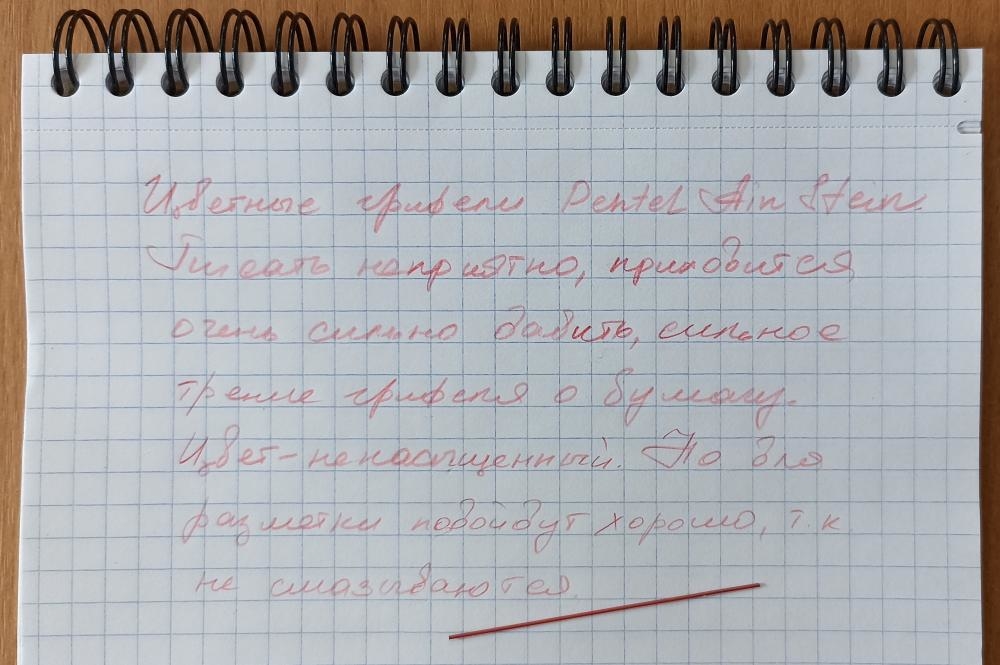 Цветные грифели Pentel Ain Stein.
Писать неприятно, приходится
очень сильно давить, сильное
трение грифеля о бумагу.
Цвет - ненасыщенный. Но для
разметки подойдут хорошо, т.к
не смазываются.